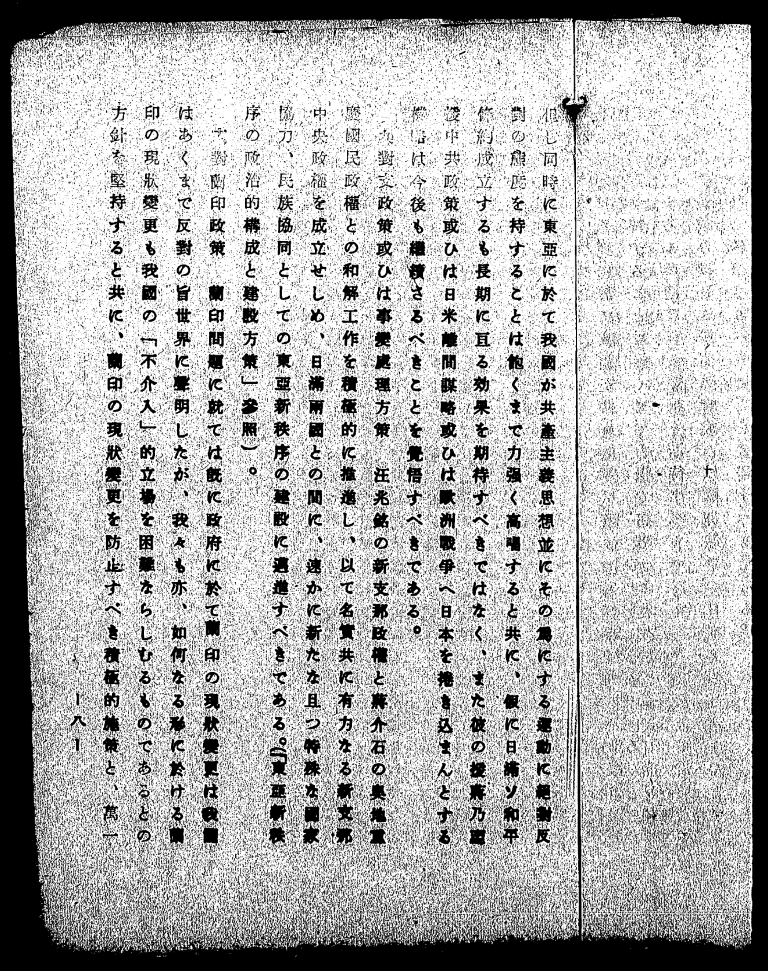 但し同時に東亞に於て我國が共產主義思想並にその爲にする運動に絕對反
對の態度を持することは飽くまで力强く高唱すると共に、假に日滿ソ和平
條約成立するも長期に亘る効果を期待すべきではなく、また彼の援蔣乃至
援中共政策或ひは日米離間謀略或ひは歐洲戰爭へ日本を捲き込まんとする
は今後も繼續さるべきことを覺悟すべきである。
對支政策或ひは事變處理方策　汪兆銘の新支那政權と蔣介石の奧地重
慶國民政權との和解工作を積極的に推進し、以て名實共に有力なる新支那
中央政權を成立せしめ、日滿兩國との間に、速かに新たな且つ特殊な國家
協力、民族協同としての東亞新秩序の建設に邁進すべきである。(「東亞新秩
序の政治的構成と建設方策」參照)。
對蘭印政策　蘭印問題に就ては旣に政府に於て蘭印の現狀變更は我國
はあくまで反對の旨世界に聲明したが、我々も亦、如何なる形に於ける蘭
印の現狀變更も我國の「不介入」的立場を困難ならしむるものであるとの
方針を堅持すると共に、蘭印の現狀變更を防止すべき積極的施策と、萬一
—八—